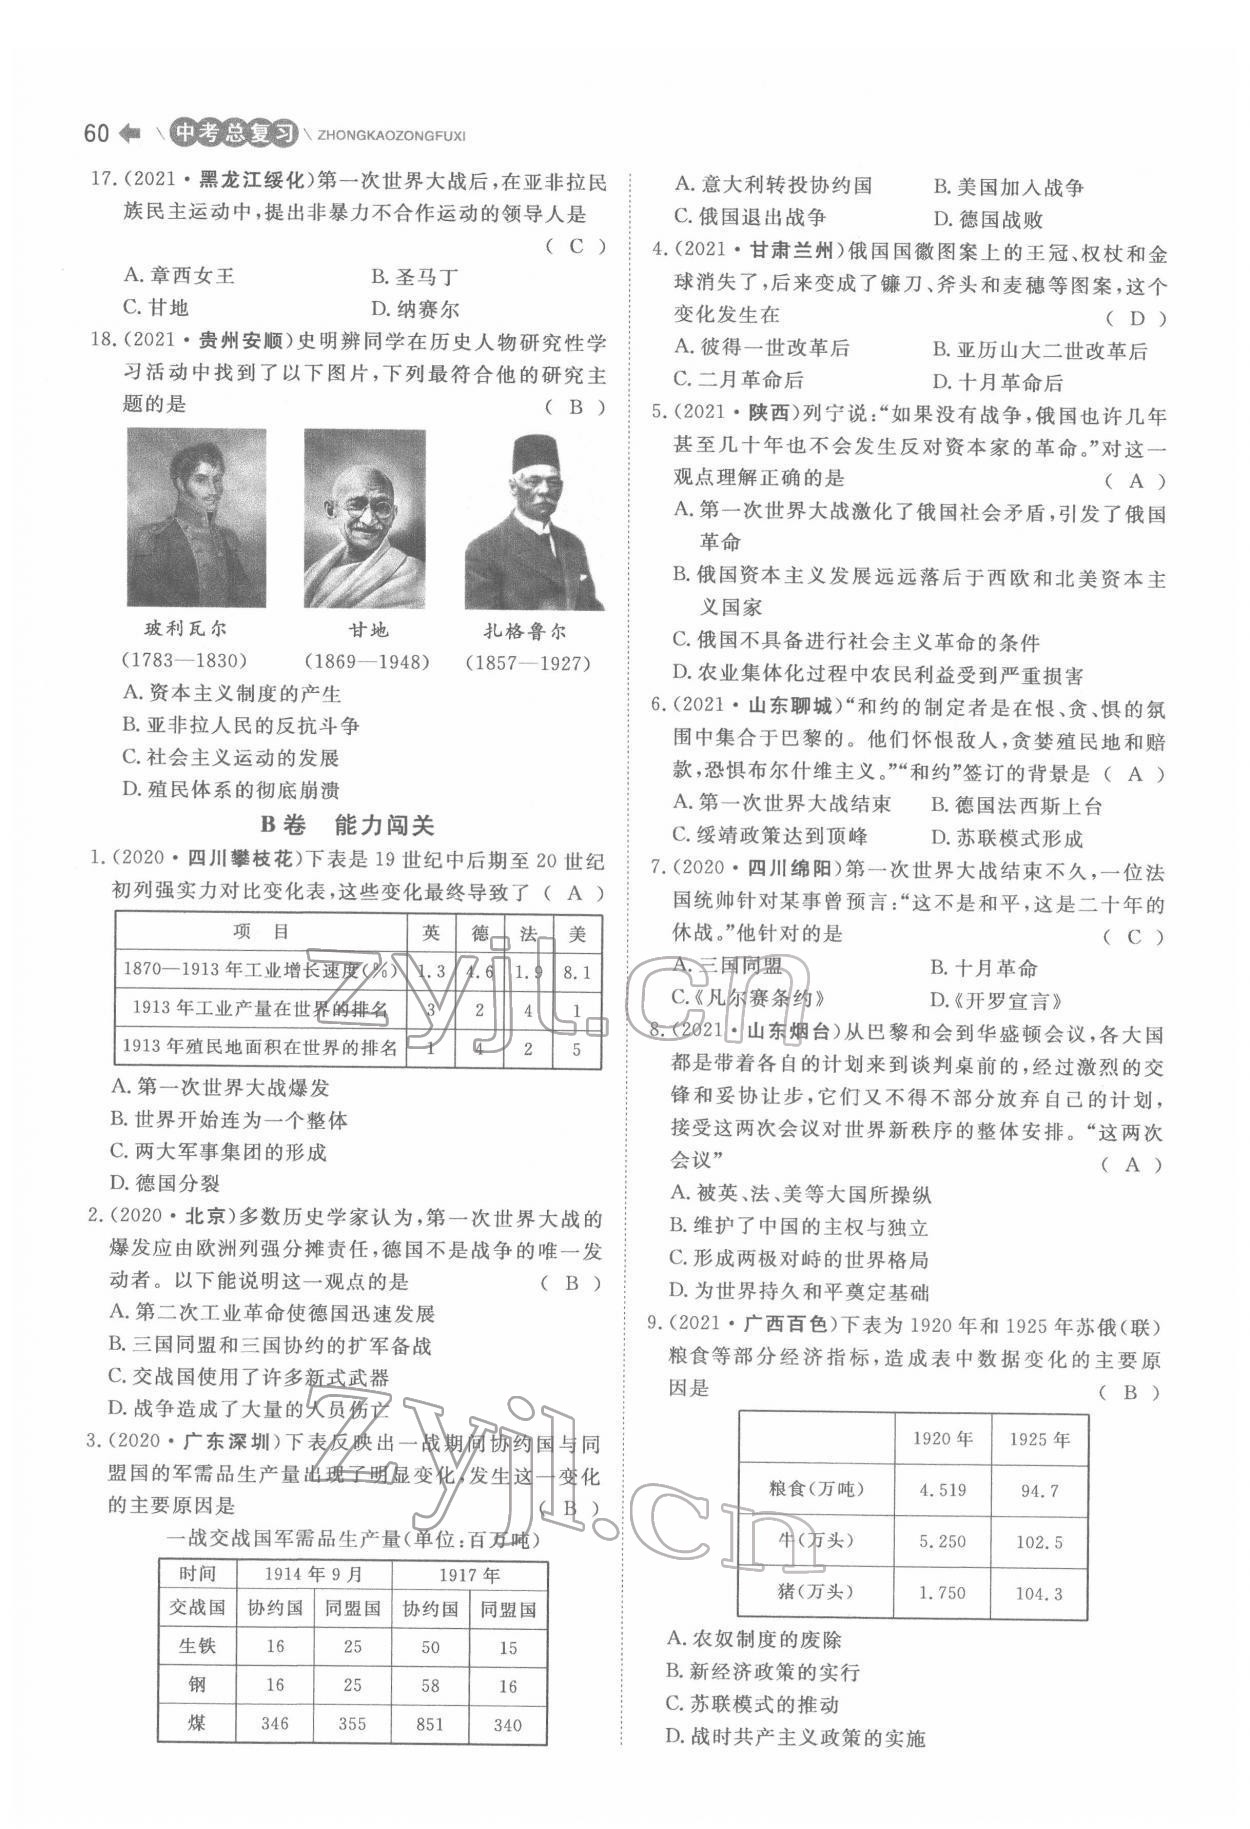 60 中考总复习 ZHONGKAOZONGFUXI
17.(2021·黑龙江绥化)第一次世界大战后,在亚非拉民
族民主运动中,提出非暴力不合作运动的领导人是
( C )
A.章西女王 B.圣马丁
C.甘地 D.纳赛尔
18.(2021·贵州安顺)史明辨同学在历史人物研究性学
习活动中找到了以下图片,下列最符合他的研究主
题的是 ( B )
玻利瓦尔 甘地 扎格鲁尔
(1783—1830) (1869—1948) (1857—1927)
A.资本主义制度的产生
B.亚非拉人民的反抗斗争
C.社会主义运动的发展
D.殖民体系的彻底崩溃
B卷 能力闯关
1.(2020·四川攀枝花)下表是19世纪中后期至20世纪
初列强实力对比变化表,这些变化最终导致了( A )
项 目 英 德 法 美
1870—1913年工业增长速度(%) 1.3 4.6 1.9 8.1
1913年工业产量在世界的排名 3 2 4 1
1913年殖民地面积在世界的排名 1 4 2 5
A.第一次世界大战爆发
B.世界开始连为一个整体
C.两大军事集团的形成
D.德国分裂
2.(2020·北京)多数历史学家认为,第一次世界大战的
爆发应由欧洲列强分摊责任,德国不是战争的唯一发
动者。以下能说明这一观点的是 ( B )
A.第二次工业革命使德国迅速发展
B.三国同盟和三国协约的扩军备战
C.交战国使用了许多新式武器
D.战争造成了大量的人员伤亡
3.(2020·广东深圳)下表反映出一战期间协约国与同
盟国的军需品生产量出现了明显变化,发生这一变化
的主要原因是 ( B )
一战交战国军需品生产量(单位:百万吨)
时间 1914年9月 1917年
交战国 协约国 同盟国 协约国 同盟国
生铁 16 25 50 15
钢 16 25 58 16
煤 346 355 851 340
A.意大利转投协约国 B.美国加入战争
C.俄国退出战争 D.德国战败
4.(2021·甘肃兰州)俄国国徽图案上的王冠、权杖和金
球消失了,后来变成了镰刀、斧头和麦穗等图案,这个
变化发生在 ( D )
A.彼得一世改革后 B.亚历山大二世改革后
C.二月革命后 D.十月革命后
5.(2021·陕西)列宁说:“如果没有战争,俄国也许几年
甚至几十年也不会发生反对资本家的革命。”对这一
观点理解正确的是 ( A )
A.第一次世界大战激化了俄国社会矛盾,引发了俄国
革命
B.俄国资本主义发展远远落后于西欧和北美资本主
义国家
C.俄国不具备进行社会主义革命的条件
D.农业集体化过程中农民利益受到严重损害
6.(2021·山东聊城)“和约的制定者是在恨、贪、惧的氛
围中集合于巴黎的。他们怀恨敌人,贪婪殖民地和赔
款,恐惧布尔什维主义。”“和约”签订的背景是( A )
A.第一次世界大战结束 B.德国法西斯上台
C.绥靖政策达到顶峰 D.苏联模式形成
7.(2020·四川绵阳)第一次世界大战结束不久,一位法
国统帅针对某事曾预言:“这不是和平,这是二十年的
休战。”他针对的是 ( C )
A.三国同盟 B.十月革命
C.《凡尔赛条约》 D.《开罗宣言》
8.(2021·山东烟台)从巴黎和会到华盛顿会议,各大国
都是带着各自的计划来到谈判桌前的,经过激烈的交
锋和妥协让步,它们又不得不部分放弃自己的计划,
接受这两次会议对世界新秩序的整体安排。“这两次
会议” ( A )
A.被英、法、美等大国所操纵
B.维护了中国的主权与独立
C.形成两极对峙的世界格局
D.为世界持久和平奠定基础
9.(2021·广西百色)下表为1920年和1925年苏俄(联)
粮食等部分经济指标,造成表中数据变化的主要原
因是 ( B )
1920年 1925年
粮食(万吨) 4.519 94.7
牛(万头) 5.250 102.5
猪(万头) 1.750 104.3
A.农奴制度的废除
B.新经济政策的实行
C.苏联模式的推动
D.战时共产主义政策的实施
zyjl.cn
zyjl.cn